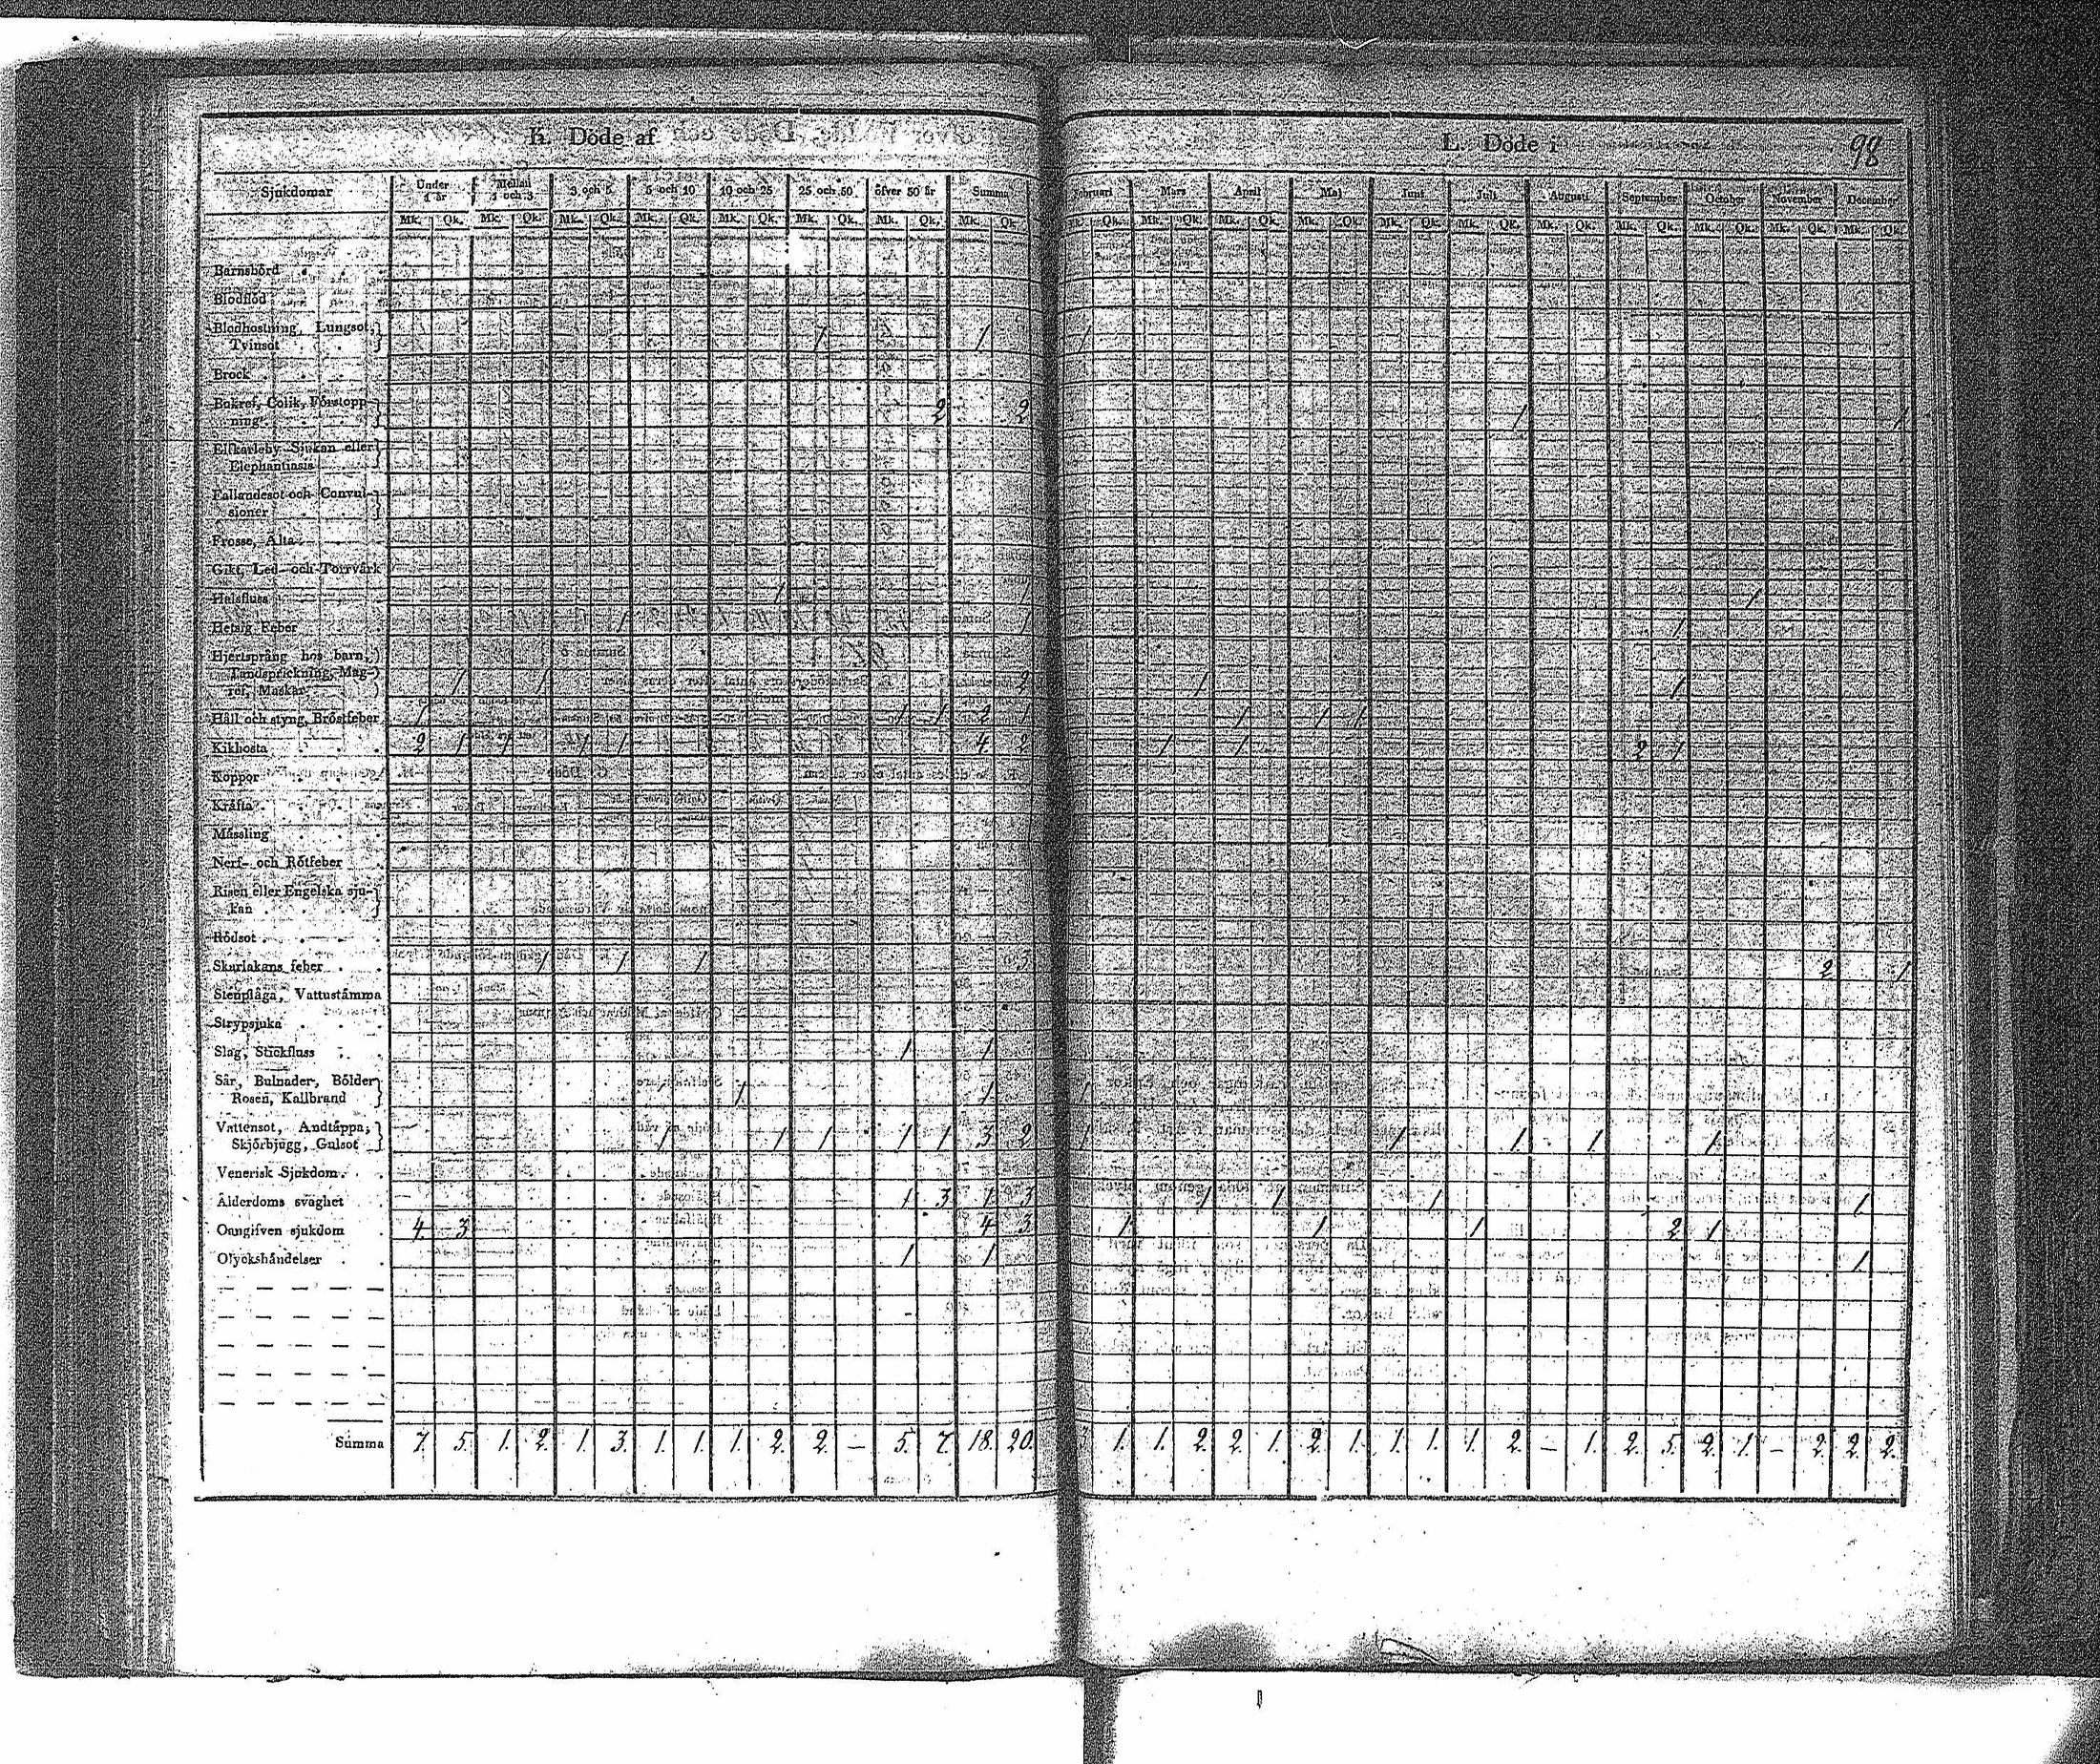 K. Döde af
L. Döde i
98
Sjukdomar | Under 1 år | Mellan 1 och 3 | 3 och 5 | 5 och 10 | 10 och 25 | 25 och 50 | öfver 50 år | Summa | Februari | Mars | April | Maj | Juni | Juli | Augusti | September | October | November | December
Mk. Qk. Mk. Qk. Mk. Qk. Mk. Qk. Mk. Qk. Mk. Qk. Mk. Qk. Mk. Qk. Mk. Qk. Mk. Qk. Mk. Qk. Mk. Qk. Mk. Qk. Mk. Qk. Mk. Qk. Mk. Qk. Mk. Qk. Mk. Qk. Mk. Qk.
Barnsbörd
Blodflöd
Blodhostning, Lungsot,
Tvinsot 1 1 1
Brock
Bukref, Colik, Förstopp-
ning 2 2 1 1
Elfkarleby Sjukan eller
Elephantiasis
Fallandesot och Convul-
sioner
Frossa, Älta
Gikt, Led- och Torrvärk
Halsfluss 1 1 1
Hetsig Feber 1 1 1
Hjertsprång hos barn,
Landsprickning, Mag-
ref, Maskar 1 1 2 1 1
Håll och styng, Bröstfeber 1 1 1 2 1 1 1 1
Kikhosta 2 1 1 1 1 4 2 1 1 2 1
Koppor
Kräfta
Mässling
Nerf- och Rötfeber
Risen eller Engelska sju-
kan
Rödsot
Skarlakans feber 1 1 1 3 2 1
Stenplåga, Vattustämma
Strypsjuka
Slag, Stickfluss 1 1
Sår, Bulnader, Bölder
Rosen, Kallbrand 1 1 1
Vattensot, Andtäppa,
Skjörbjugg, Gulsot 1 1 1 1 1 3 2 1 1 1 1 1
Venerisk Sjukdom
Ålderdoms svaghet 1 3 1 3 1 1 1 1
Oangifven sjukdom 4 3 4 3 1 1 1 2 1
Olyckshändelser 1 1 1
Summa 7. 5. 1. 2. 1. 3. 1. 1. 1. 2. 2. — 5. 7. 18. 20. 1. 1. 2. 2. 1. 2. 1. 1. 1. 1. 2. — 1. 2. 5. 2. 1. — 2. 2. 2.